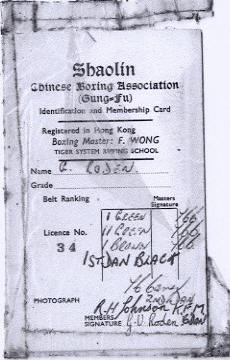 Shaolin
Chinese Boxing Association
(Gung-Fu)
Identification and Membership Card
Registered in Hong Kong
Boxing Master: F. WONG
TIGER SYSTEM BOXING SCHOOL
Name
Grade
Belt Ranking Masters Signature
1 GREEN /66
11 GREEN /66
Licence No. 1 BROWN /66
34
1ST DAN BLACK
2ND DAN
PHOTOGRAPH
R H Johnson
MEMBERS SIGNATURE